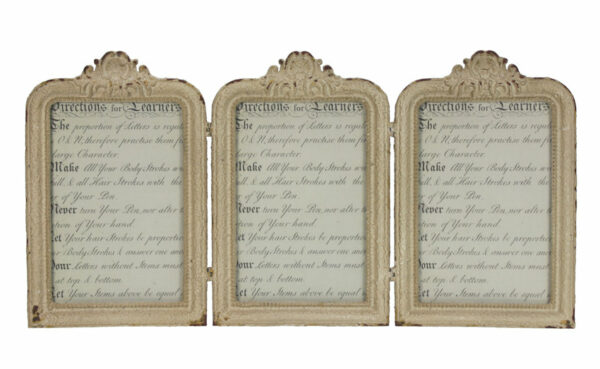 Directions for Learners
The proportion of Letters is regul
O & N, therefore practise them fi
large Character.
Make All Your Body Strokes w
ull, & all Hair Strokes with the
r of Your Pen.
Never turn Your Pen, nor alter t
tion of Your hand.
Let Your hair Strokes be proportio
r Body Strokes & answer one and
Your Letters without Stems must
at top & bottom.
Let Your Stems above be equal
Directions for Learners
The proportion of Letters is regula
O & N, therefore practise them fi
large Character.
Make All Your Body Strokes w
ull, & all Hair Strokes with the
r of Your Pen.
Never turn Your Pen, nor alter t
tion of Your hand.
Let Your hair Strokes be proportion
r Body Strokes & answer one and
Your Letters without Stems must
at top & bottom.
Let Your Stems above be equal
Directions for Learners
The proportion of Letters is regul
O & N, therefore practise them fi
large Character.
Make All Your Body Strokes w
ull, & all Hair Strokes with the
r of Your Pen.
Never turn Your Pen, nor alter t
tion of Your hand.
Let Your hair Strokes be proportio
r Body Strokes & answer one and
Your Letters without Stems must
at top & bottom.
Let Your Stems above be equal